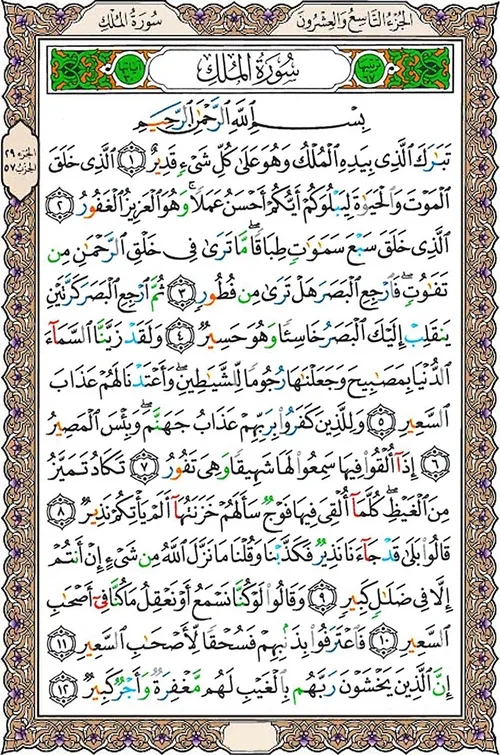 سُورَةُ المُلْكِ
الجُزْءُ التَّاسِعُ وَالعِشْرُونَ
سُورَةُ المُلْكِ
بِسْمِ ٱللَّهِ ٱلرَّحْمَٰنِ ٱلرَّحِيمِ
تَبَٰرَكَ ٱلَّذِى بِيَدِهِ ٱلْمُلْكُ وَهُوَ عَلَىٰ كُلِّ شَىْءٍ قَدِيرٌ ١ ٱلَّذِى خَلَقَ
ٱلْمَوْتَ وَٱلْحَيَوٰةَ لِيَبْلُوَكُمْ أَيُّكُمْ أَحْسَنُ عَمَلًا ۚ وَهُوَ ٱلْعَزِيزُ ٱلْغَفُورُ ٢
ٱلَّذِى خَلَقَ سَبْعَ سَمَٰوَٰتٍ طِبَاقًا ۖ مَّا تَرَىٰ فِى خَلْقِ ٱلرَّحْمَٰنِ مِن
تَفَٰوُتٍ ۖ فَٱرْجِعِ ٱلْبَصَرَ هَلْ تَرَىٰ مِن فُطُورٍ ٣ ثُمَّ ٱرْجِعِ ٱلْبَصَرَ كَرَّتَيْنِ
يَنقَلِبْ إِلَيْكَ ٱلْبَصَرُ خَاسِئًا وَهُوَ حَسِيرٌ ٤ وَلَقَدْ زَيَّنَّا ٱلسَّمَآءَ
ٱلدُّنْيَا بِمَصَٰبِيحَ وَجَعَلْنَٰهَا رُجُومًا لِّلشَّيَٰطِينِ ۖ وَأَعْتَدْنَا لَهُمْ عَذَابَ
ٱلسَّعِيرِ ٥ وَلِلَّذِينَ كَفَرُوا۟ بِرَبِّهِمْ عَذَابُ جَهَنَّمَ ۖ وَبِئْسَ ٱلْمَصِيرُ
٦ إِذَآ أُلْقُوا۟ فِيهَا سَمِعُوا۟ لَهَا شَهِيقًا وَهِىَ تَفُورُ ٧ تَكَادُ تَمَيَّزُ
مِنَ ٱلْغَيْظِ ۖ كُلَّمَآ أُلْقِىَ فِيهَا فَوْجٌ سَأَلَهُمْ خَزَنَتُهَآ أَلَمْ يَأْتِكُمْ نَذِيرٌ ٨
قَالُوا۟ بَلَىٰ قَدْ جَآءَنَا نَذِيرٌ فَكَذَّبْنَا وَقُلْنَا مَا نَزَّلَ ٱللَّهُ مِن شَىْءٍ إِنْ أَنتُمْ
إِلَّا فِى ضَلَٰلٍ كَبِيرٍ ٩ وَقَالُوا۟ لَوْ كُنَّا نَسْمَعُ أَوْ نَعْقِلُ مَا كُنَّا فِىٓ أَصْحَٰبِ
ٱلسَّعِيرِ ١٠ فَٱعْتَرَفُوا۟ بِذَنۢبِهِمْ فَسُحْقًا لِّأَصْحَٰبِ ٱلسَّعِيرِ ١١
إِنَّ ٱلَّذِينَ يَخْشَوْنَ رَبَّهُم بِٱلْغَيْبِ لَهُم مَّغْفِرَةٌ وَأَجْرٌ كَبِيرٌ ١٢
الجزء ٢٩
الحزب ٥٧